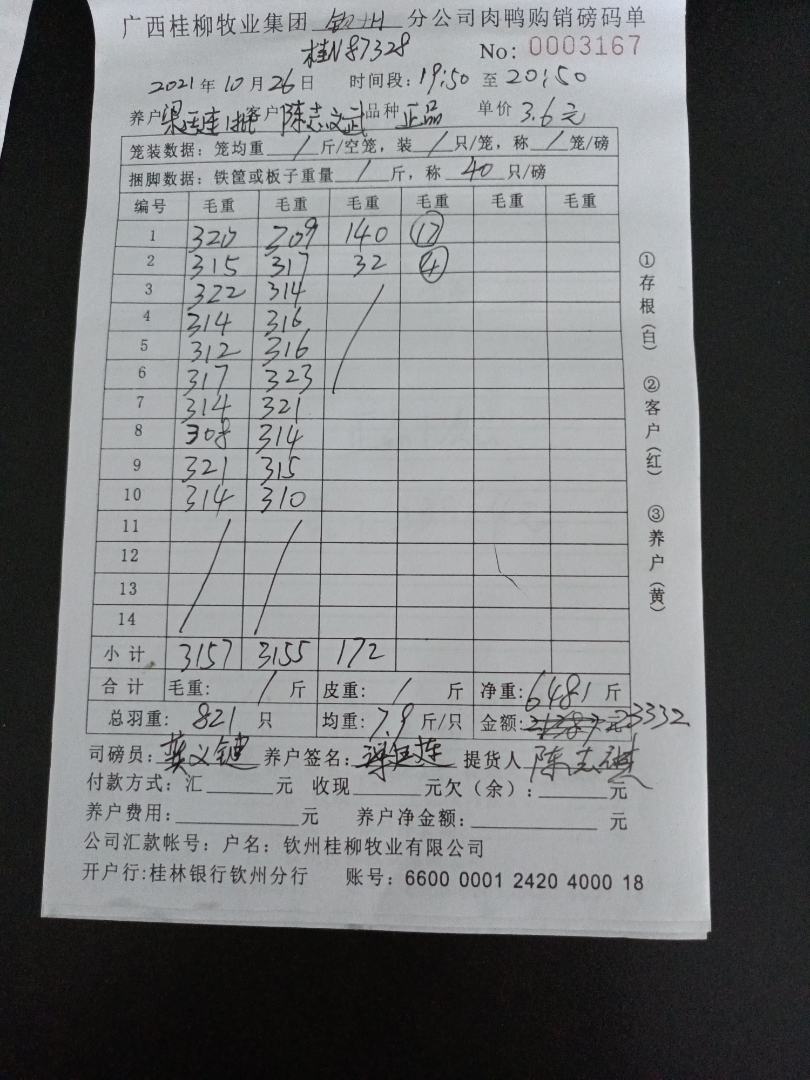 广西桂柳牧业集团 钦州 分公司肉鸭购销磅码单
桂N87328 No: 0003167
2021年10月26日 时间段: 19:50 至 20:50
养户 客户 陈志文武 品种 正品 单价 3.6元
笼装数据: 笼均重 / 斤/空笼, 装 / 只/笼, 称 / 笼/磅
捆脚数据: 铁筐或板子重量 / 斤, 称 40 只/磅
编号 毛重 毛重 毛重 毛重 毛重 毛重
1 320 309 140 ⑰
2 315 317 32 ④
3 322 314
4 314 316
5 312 316
6 317 323
7 314 321
8 308 314
9 321 315
10 314 310
11
12
13
14
小计 3157 3155 172
合计 毛重: / 斤 皮重: / 斤 净重: 6481 斤
总羽重: 821 只 均重: 7.9 斤/只 金额: 元 23332
司磅员: 养户签名: 提货人 陈志
付款方式: 汇 元 收现 元欠(余): 元
养户费用: 元 养户净金额: 元
公司汇款帐号: 户名: 钦州桂柳牧业有限公司
开户行:桂林银行钦州分行 账号: 6600 0001 2420 4000 18
①存根(白) ②客户(红) ③养户(黄)